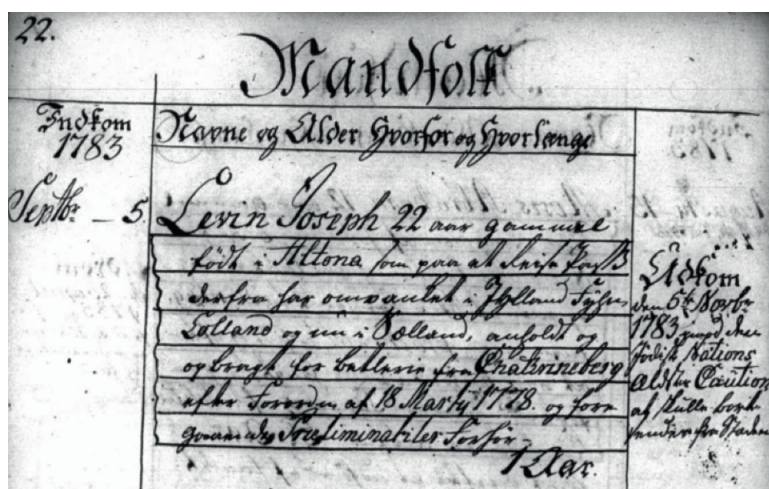 22.
Mandfolk
Indkom
1783
Navne og Alder Hvorfor og Hvorlænge
Septbr - 5.
Levin Joseph 22 aar gammel
født i Altona som paa et Reise Pass
derfra har omvanket i Jylland Fyhn
Lolland og nu i Sælland, anholdt og
opbragt for betlerie fra
efter Forordn af 18 Marty 1778. og fore
Forhør
1 Aar.
Udkom
den 6te Novbr
1783 den
Jødiske Nations
Ældster Caution
at skulle bort
sendes fra Staden